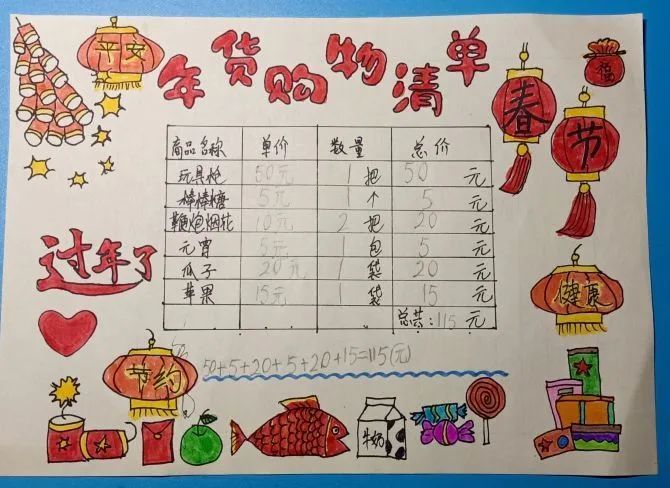 平安
年货购物清单
福
春
节
商品名称 单价 数量 总价
玩具枪 50元 1把 50元
棒棒糖 5元 1个 5元
鞭炮烟花 10元 2把 20元
元宵 5元 1包 5元
瓜子 20元 1袋 20元
苹果 15元 1袋 15元
总共:115元
过年了
健康
节约
50+5+20+5+20+15=115(元)
牛奶